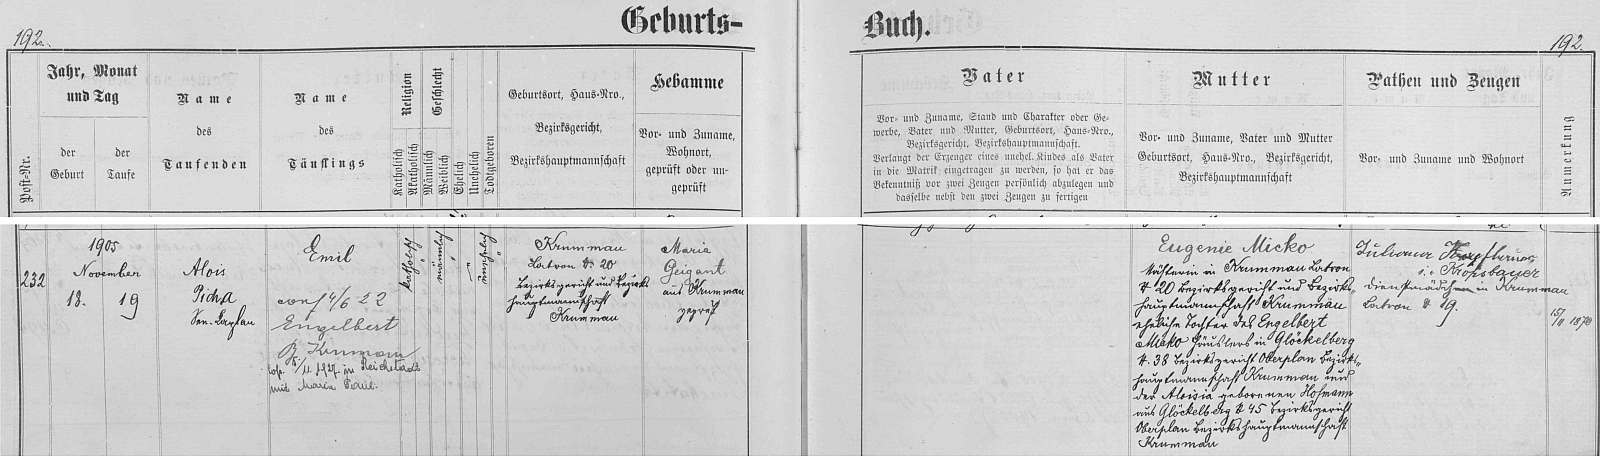 Geburts-
Buch.
192.
192.
Post-Nr.
Jahr, Monat
und Tag
der
Geburt
der
Taufe
Name
des
Taufenden
Name
des
Täuflings
Religion
Katholisch
Akatholisch
Geschlecht
Männlich
Weiblich
Ehelich
Unehelich
Todtgeboren
Geburtsort, Haus-Nro.,
Bezirksgericht,
Bezirkshauptmannschaft
Hebamme
Vor- und Zuname,
Wohnort,
geprüft oder un-
geprüft
Vater
Vor- und Zuname, Stand und Charakter oder Ge-
werbe, Vater und Mutter, Geburtsort, Haus-Nro.,
Bezirksgericht, Bezirkshauptmannschaft.
Verlangt der Erzeuger eines unehel. Kindes als Vater
in die Matrik eingetragen zu werden, so hat er das
Bekenntniß vor zwei Zeugen persönlich abzulegen und
dasselbe nebst den zwei Zeugen zu fertigen
Mutter
Vor- und Zuname, Vater und Mutter
Geburtsort, Haus-Nro., Bezirksgericht,
Bezirkshauptmannschaft
Pathen und Zeugen
Vor- und Zuname und Wohnort
Anmerkung
232
1905
November
18. 19
Alois
Picha
Emil
conf 4/6 22
Engelbert
Krummau
cop. 5/11. 1927 in Reichstadt
mit Maria
katholisch
männlich
unehelich
Krummau
Latron N. 20
Bezirksgericht und Bezirks
hauptmannschaft
Krummau
Maria
Geigant
aus Krummau
geprüft
Eugenie Micko
in Krummau Latron
N 20 Bezirksgericht und Bezirks-
hauptmannschaft Krummau
eheliche Tochter des Engelbert
Micko Häuslers in Glöckelberg
N. 38 Bezirksgericht Oberplan Bezirks-
hauptmannschaft Krummau und
der Aloisia geborenen Hofmann
aus Glöckelberg N 45 Bezirksgericht
Oberplan Bezirkshauptmannschaft
Krummau
Juliana
Kropsbauer
Dienstmädchen in Krummau
Latron N 9.
15/II 1879